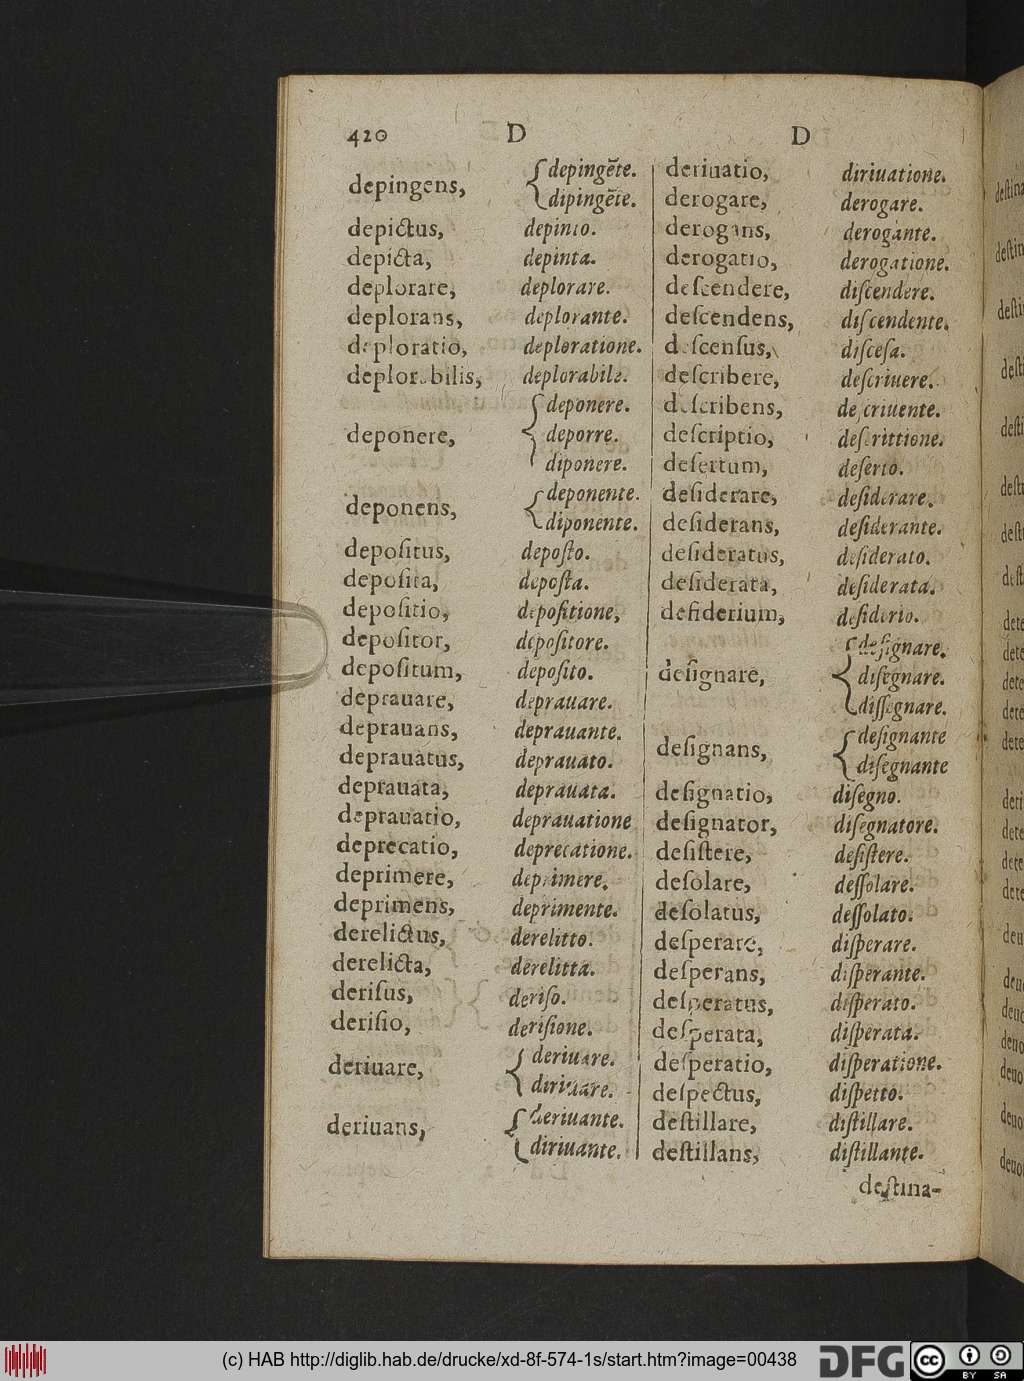 420 D D
depingens, depingēte.
dipingēte.
depictus, depinto.
depicta, depinta.
deplorare, deplorare.
deplorans, deplorante.
deploratio, deploratione.
deplorabilis, deplorabile.
deponere, deponere.
deporre.
diponere.
deponens, deponente.
diponente.
depoſitus, depoſto.
depoſita, depoſta.
depoſitio, depoſitione,
depoſitor, depoſitore.
depoſitum, depoſito.
deprauare, deprauare.
deprauans, deprauante.
deprauatus, deprauato.
deprauata, deprauata.
deprauatio, deprauatione
deprecatio, deprecatione.
deprimere, deprimere.
deprimens, deprimente.
derelictus, derelitto.
derelicta, derelitta.
deriſus, deriſo.
deriſio, deriſione.
deriuare, deriuare.
diriuare.
deriuans, deriuante.
diriuante.
deriuatio, diriuatione.
derogare, derogare.
derogans, derogante.
derogatio, derogatione.
deſcendere, diſcendere.
deſcendens, diſcendente.
deſcenſus, diſceſa.
deſcribere, deſcriuere.
deſcribens, deſcriuente.
deſcriptio, deſcrittione.
deſertum, deſerto.
deſiderare, deſiderare.
deſiderans, deſiderante.
deſideratus, deſiderato.
deſiderata, deſiderata.
deſiderium, deſiderio.
deſignare, deſignare.
diſegnare.
diſſegnare.
deſignans, deſignante
diſegnante
deſignatio, diſegno.
deſignator, diſegnatore.
deſiſtere, deſiſtere.
deſolare, deſſolare.
deſolatus, deſſolato.
deſperare, diſperare.
deſperans, diſperante.
deſperatus, diſperato.
deſperata, diſperata.
deſperatio, diſperatione.
deſpectus, diſpetto.
deſtillare, diſtillare.
deſtillans, diſtillante.
deſtina-
(c) HAB http://diglib.hab.de/drucke/xd-8f-574-1s/start.htm?image=00438
DFG cc BY SA